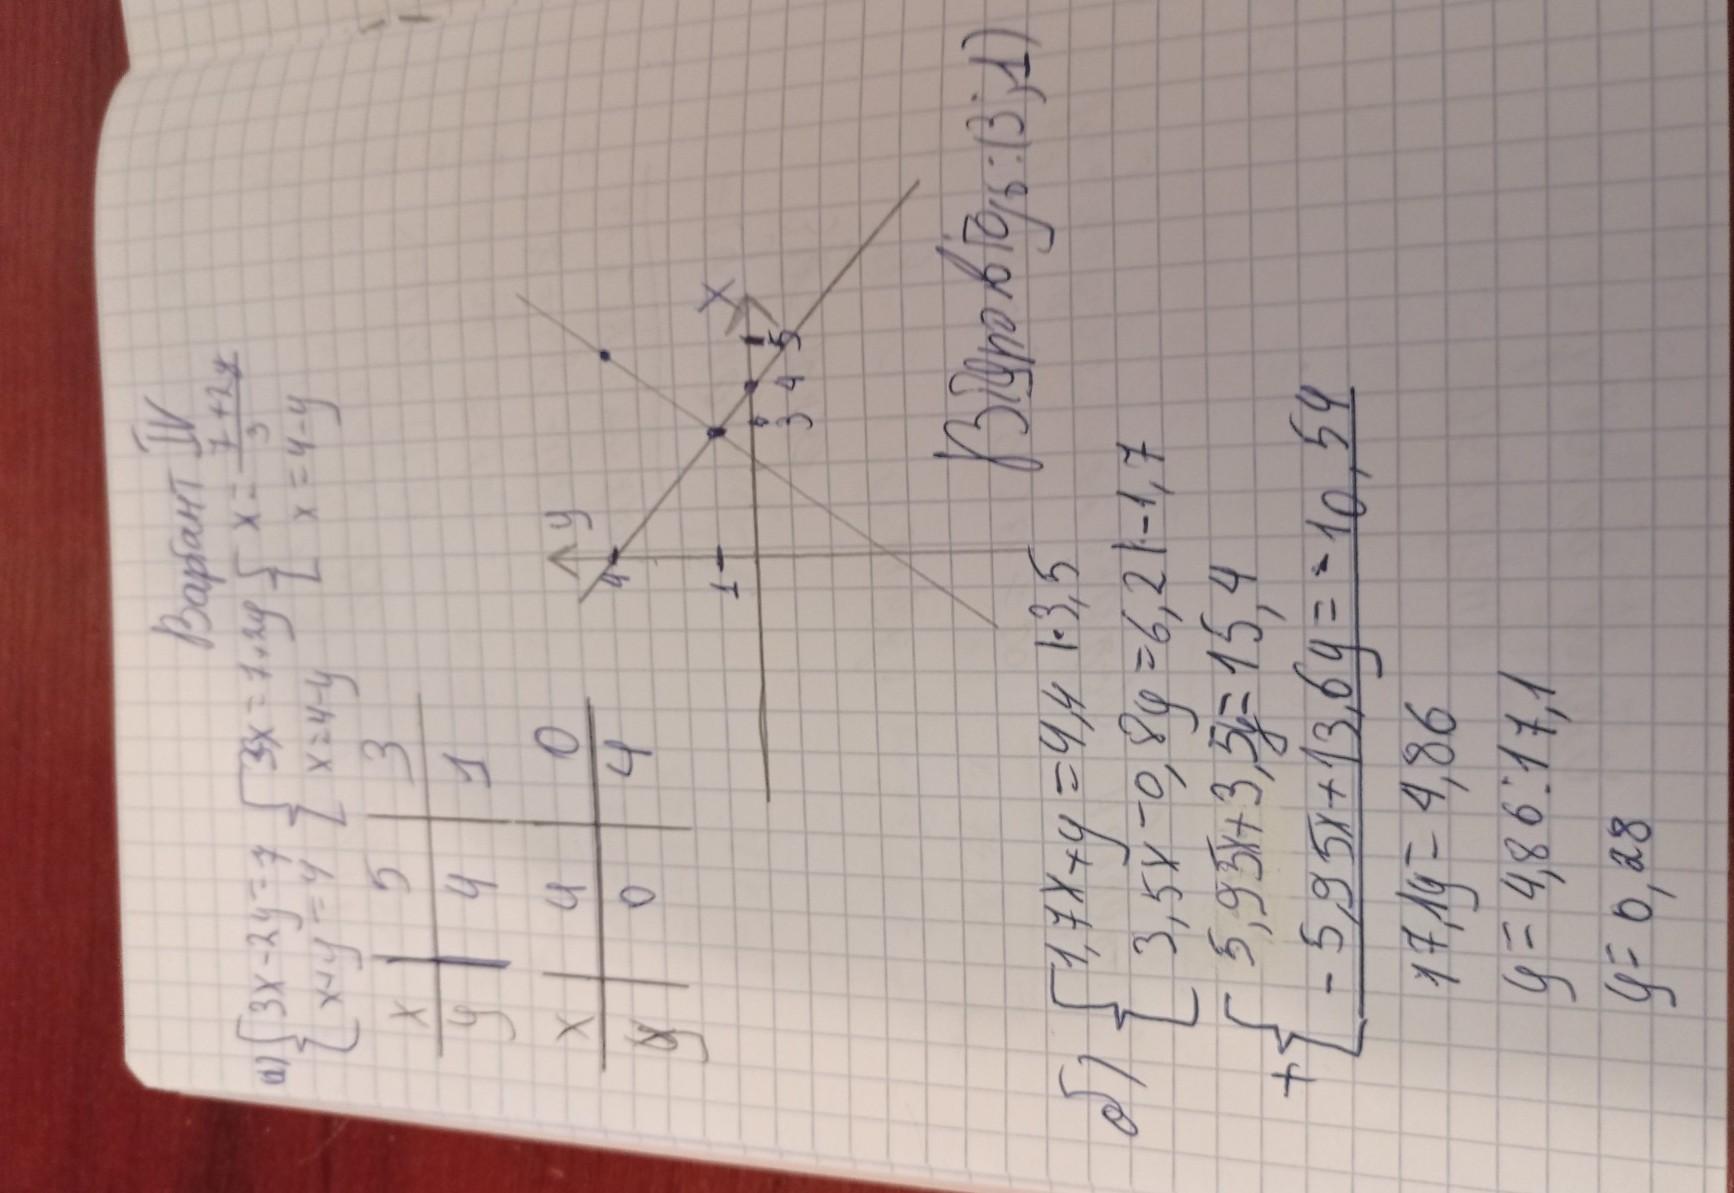 Варіант IV
а) { 3x-2y=7 { 3x=7+2y { x=7+2y/3
x+y=4 x=4-y x=4-y
x 5 3
y 4 1
x 4 0
y 0 4
y
4
1
x
3 4 5
Відповідь: (3;1)
б) { 1,7x+y=4,4 |·3,5
3,5x-0,8y=6,2 |·-1,7
+ { 5,95x+3,5y=15,4
-5,95x+13,6y=-10,54
17,1y=4,86
y=4,86:17,1
y=0,28